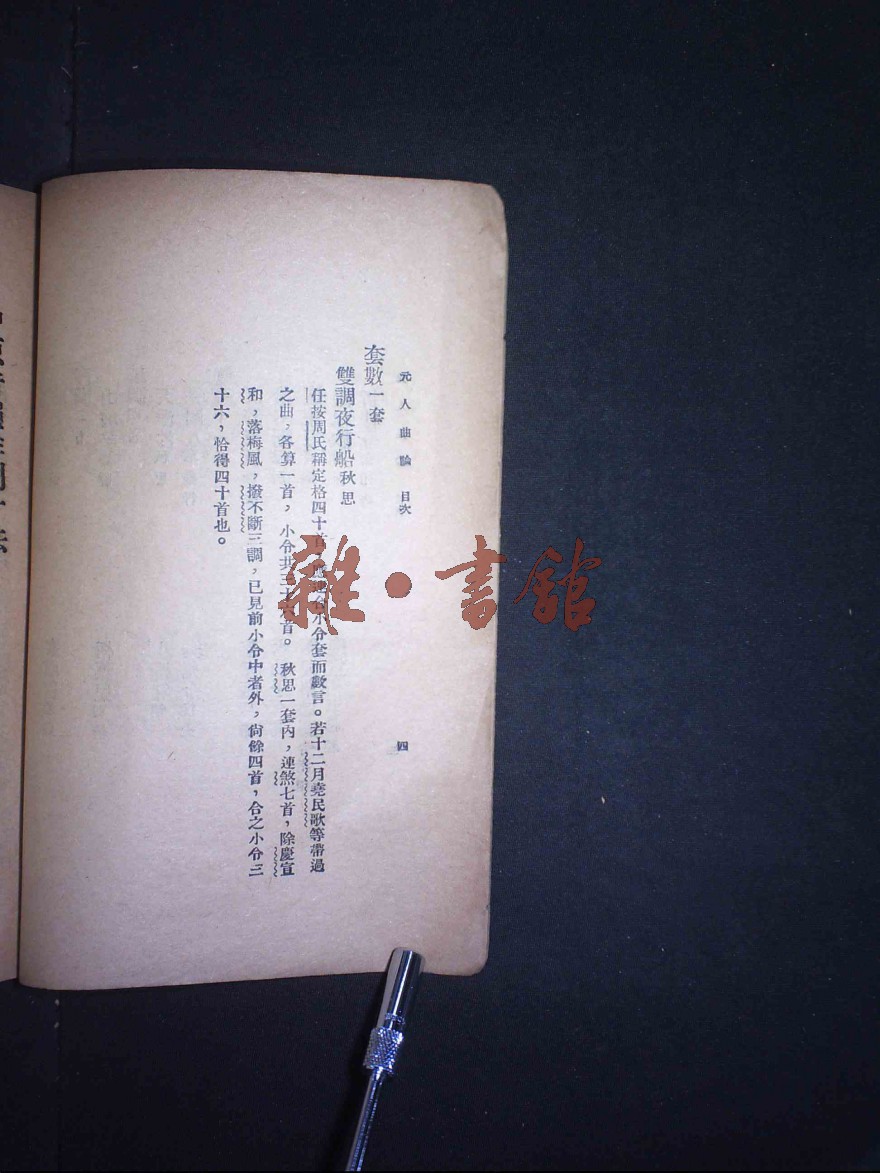 元人曲論 目次 四
套數一套
雙調夜行船秋思
任按周氏稱定格四十首,小令套而數言。若十二月堯民歌等帶過
之曲,各算一首,小令共三十六首。秋思一套內,連煞七首,除慶宣
和,落梅風,撥不斷三調,已見前小令中者外,尙餘四首,合之小令三
十六,恰得四十首也。
雜·書館